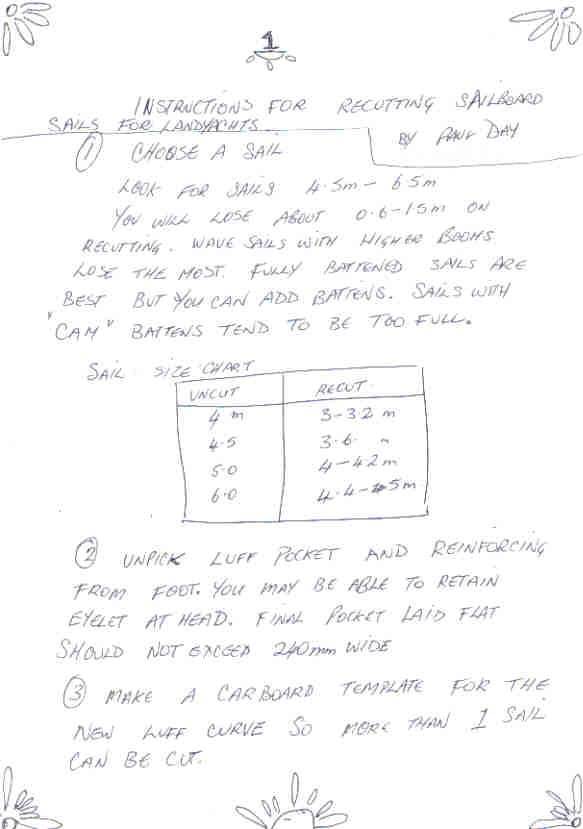 1
INSTRUCTIONS FOR RECUTTING SAILBOARD
SAILS FOR LANDYACHTS.
BY PAUL DAY
1 CHOOSE A SAIL
LOOK FOR SAILS 4.5m - 6.5m
YOU WILL LOSE ABOUT 0.6-1.5m ON
RECUTTING. WAVE SAILS WITH HIGHER BOOMS
LOSE THE MOST. FULLY BATTENED SAILS ARE
BEST BUT YOU CAN ADD BATTENS. SAILS WITH
"CAM" BATTENS TEND TO BE TOO FULL.
SAIL SIZE CHART
UNCUT RECUT
4 m 3-3.2 m
4.5 3.6 m
5.0 4-4.2m
6.0 4.4-5m
2 UNPICK LUFF POCKET AND REINFORCING
FROM FOOT. YOU MAY BE ABLE TO RETAIN
EYELET AT HEAD. FINAL POCKET LAID FLAT
SHOULD NOT EXCEED 240mm WIDE
3 MAKE A CARBOARD TEMPLATE FOR THE
NEW LUFF CURVE SO MORE THAN 1 SAIL
CAN BE CUT.